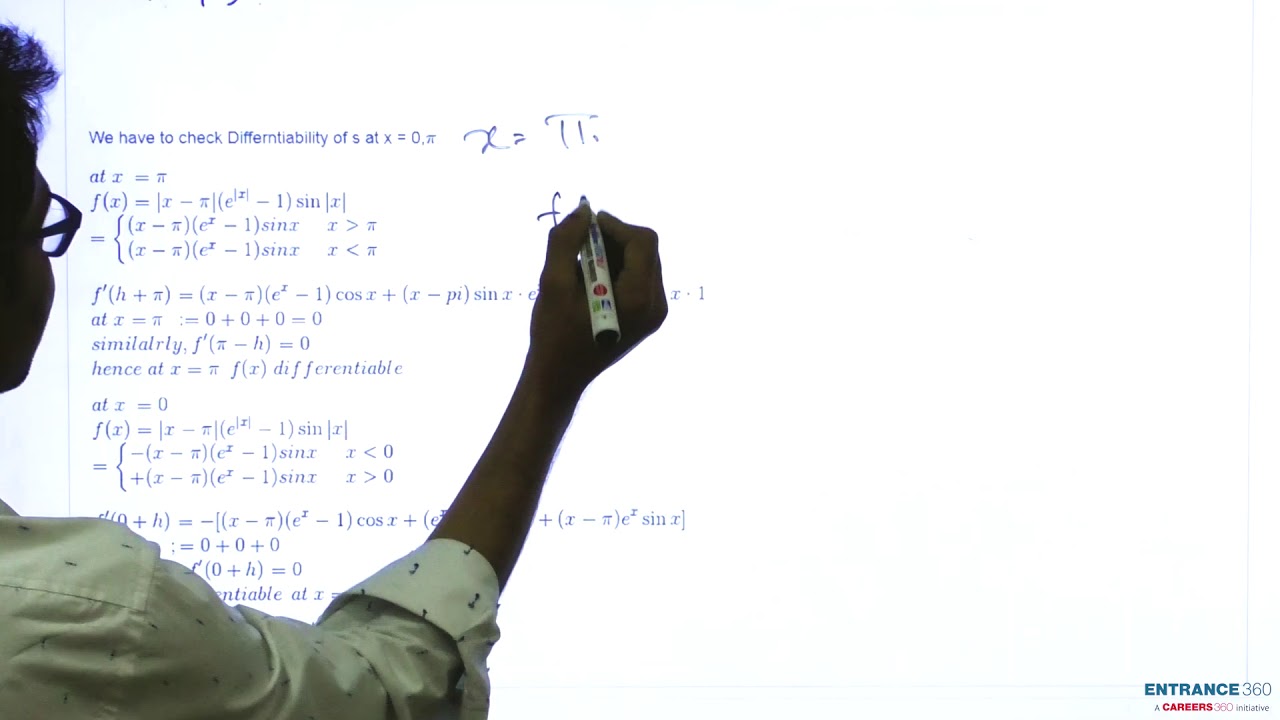 We have to check Differntiability of s at x = 0,π x = π.
at x = π
f(x) = |x − π|(e^|x| − 1) sin |x| f
= {(x − π)(e^x − 1)sinx x > π
(x − π)(e^x − 1)sinx x < π
f'(h + π) = (x − π)(e^x − 1) cos x + (x − pi) sin x · e x · 1
at x = π := 0 + 0 + 0 = 0
similalrly, f'(π − h) = 0
hence at x = π f(x) differentiable
at x = 0
f(x) = |x − π|(e^|x| − 1) sin |x|
= {−(x − π)(e^x − 1)sinx x < 0
+(x − π)(e^x − 1)sinx x > 0
f'(0 + h) = −[(x − π)(e^x − 1) cos x + (e + (x − π)e^x sin x]
:= 0 + 0 + 0
f'(0 + h) = 0
at x =
ENTRANCE 360
A CAREERS360 initiative